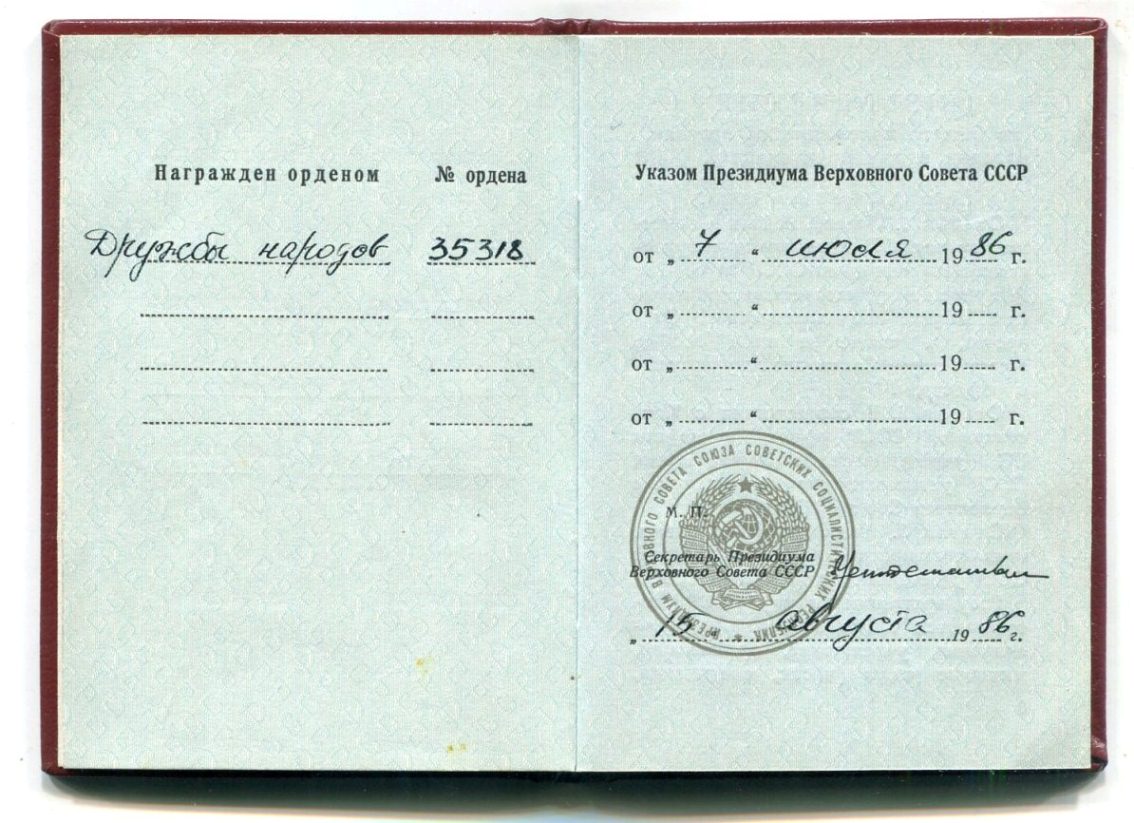 Награжден орденом № ордена
Дружбы народов 35318
Указом Президиума Верховного Совета СССР
от „ 7 “ июля 1986 г.
от „ “ 19 г.
от „ “ 19 г.
от „ “ 19 г.
ПРЕЗИДИУМ ВЕРХОВНОГО СОВЕТА СОЮЗА СОВЕТСКИХ СОЦИАЛИСТИЧЕСКИХ РЕСПУБЛИК
М. П.
Секретарь Президиума
Верховного Совета СССР
„ 15 “ августа 1986 г.